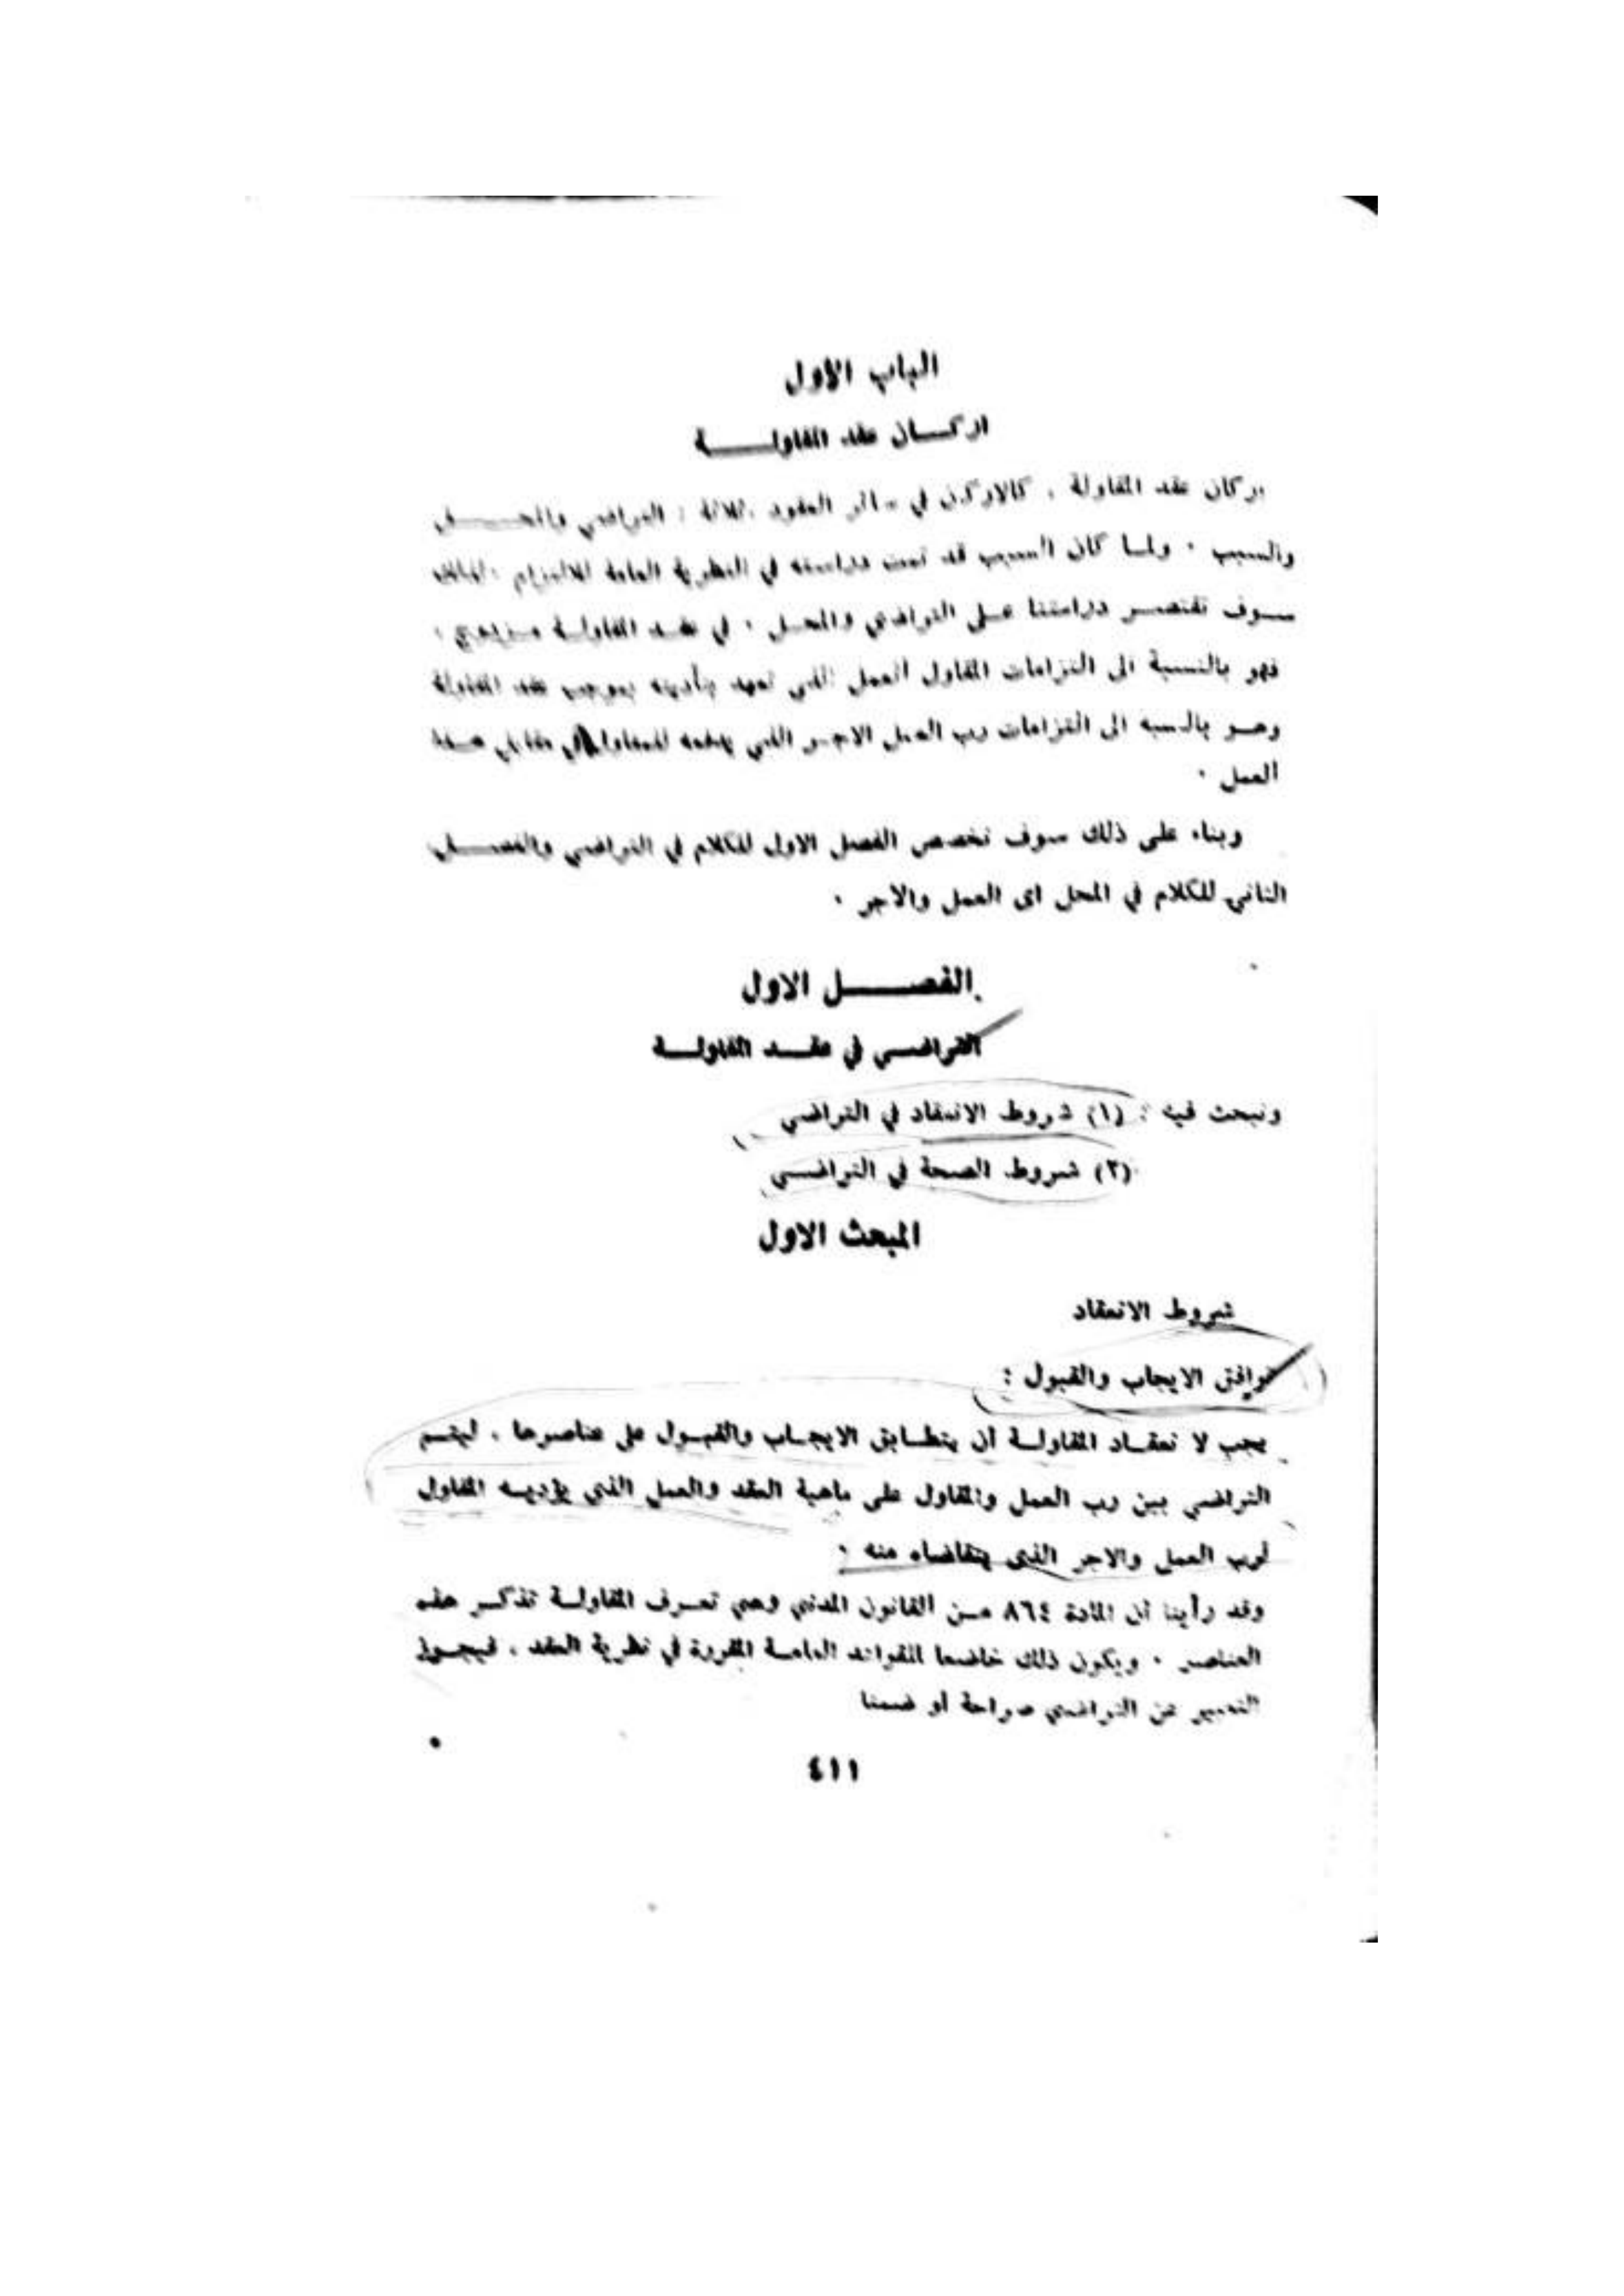 الباب الاول
اركــان عقد المقاولــــة
اركان عقد المقاولة ، كالاركان في سائر العقود ، ثلاثة : التراضي والمحــــل
والسبب ٠ ولما كان السبب قد تمت دراسته في النظرية العامة للالتزام
ســوف تقتصــر دراستنا عــلى التراضي والمحــل ٠ في عقــد المقاولــة مــزدوج ،
فهو بالنسبة الى التزامات المقاول العمل الذي تعهد بتأديته بموجب عقد المقاولة
وهــو بالنسبة الى التزامات رب العمل الاجــر الذي يدفعه للمقاول في مقابل هــذا
العمل ٠
وبناء على ذلك سوف نخصص الفصل الاول للكلام في التراضي والفصــــل
الثاني للكلام في المحل اى العمل والاجر ٠
الفصــــل الاول
التراضــي في عقــد المقاولــة
ونبحث فيه : (١) شروط الانعقاد في التراضي
(٢) شروط الصحة في التراضــي
المبحث الاول
شروط الانعقاد
توافق الايجاب والقبول :
يجب لا نعقــاد المقاولــة أن يتطــابق الايجــاب والقبــول على عناصرها ، ليتــم
التراضي بين رب العمل والمقاول على ماهية العقد والعمل الذي يؤديــه المقاول
لرب العمل والاجر الذي يتقاضاه منه ٠
وقد رأينا أن المادة ٨٦٤ مــن القانون المدني وهي تعــرف المقاولــة تذكــر هذه
العناصر ٠ ويكون ذلك خاضعا للقواعد العامــة المقررة في نظرية العقد ، فيجــوز
التعبير عن التراضي صراحة أو ضمنا
٤١١